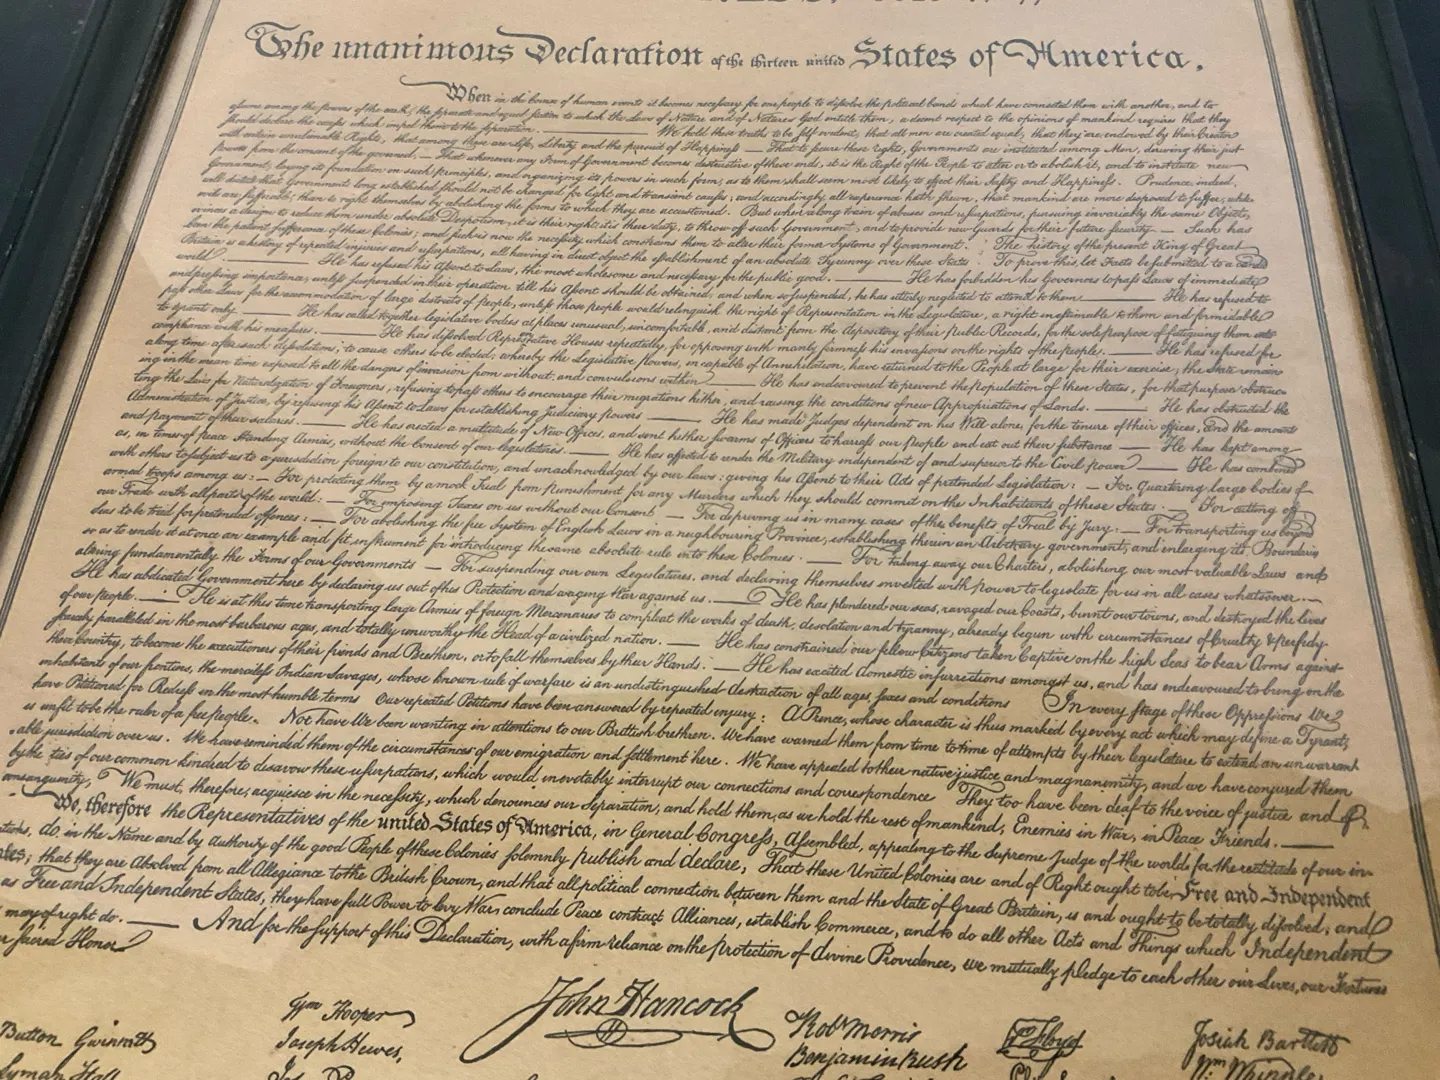 The unanimous Declaration of the thirteen united States of America.
When in the Course of human events it becomes necessary for one people to dissolve the political bands which have connected them with another, and to
assume among the powers of the earth, the separate and equal station to which the Laws of Nature and of Nature's God entitle them, a decent respect to the opinions of mankind requires that they
should declare the causes which impel them to the separation. — We hold these truths to be self evident, that all men are created equal, that they are endowed by their Creator
with certain unalienable Rights, that among these are Life, Liberty and the pursuit of Happiness — That to secure these rights, Governments are instituted among Men, deriving their just
powers from the consent of the governed, — That whenever any Form of Government becomes destructive of these ends, it is the Right of the People to alter or to abolish it, and to institute new
Government, laying its foundation on such principles, and organizing its powers in such form, as to them shall seem most likely to effect their Safety and Happiness. Prudence, indeed,
will dictate that Governments long established should not be changed for light and transient causes; and accordingly all experience hath shewn, that mankind are more disposed to suffer, while
evils are sufferable, than to right themselves by abolishing the forms to which they are accustomed. But when a long train of abuses and usurpations, pursuing invariably the same Object,
evinces a design to reduce them under absolute Despotism, it is their right, it is their duty, to throw off such Government, and to provide new Guards for their future security — Such has
been the patient sufferance of these Colonies; and such is now the necessity which constrains them to alter their former Systems of Government. The history of the present King of Great
Britain is a history of repeated injuries and usurpations, all having in direct object the establishment of an absolute Tyranny over these States. To prove this, let Facts be submitted to a candid
world. — He has refused his Assent to Laws, the most wholesome and necessary for the public good. — He has forbidden his Governors to pass Laws of immediate
and pressing importance, unless suspended in their operation till his Assent should be obtained, and when so suspended, he has utterly neglected to attend to them — He has refused to
pass other Laws for the accommodation of large districts of people, unless those people would relinquish the right of Representation in the Legislature, a right inestimable to them and formidable
to tyrants only. — He has called together legislative bodies at places unusual, uncomfortable, and distant from the depository of their public Records, for the sole purpose of fatiguing them into
compliance with his measures. — He has dissolved Representative Houses repeatedly, for opposing with manly firmness his invasions on the rights of the people. — He has refused for
a long time after such dissolutions, to cause others to be elected; whereby the Legislative powers, incapable of Annihilation, have returned to the People at large for their exercise; the State remain
ing in the mean time exposed to all the dangers of invasion from without, and convulsions within — He has endeavoured to prevent the Population of these States; for that purpose obstruc
ting the Laws for Naturalization of Foreigners, refusing to pass others to encourage their migrations hither, and raising the conditions of new Appropriations of Lands. — He has obstructed the
Administration of Justice, by refusing his Assent to Laws for establishing Judiciary powers — He has made Judges dependent on his Will alone, for the tenure of their offices, and the amount
and payment of their salaries. — He has erected a multitude of New Offices, and sent hither swarms of Officers to harass our people and eat out their substance — He has kept among
us, in times of peace Standing Armies, without the Consent of our legislatures. — He has affected to render the Military independent of and superior to the Civil power — He has combined
with others to subject us to a jurisdiction foreign to our constitution, and unacknowledged by our laws: giving his Assent to their Acts of pretended Legislation: — For Quartering large bodies of
armed troops among us: — For protecting them by a mock Trial from punishment for any Murders which they should commit on the Inhabitants of these States: — For cutting off
our Trade with all parts of the world: — For imposing Taxes on us without our Consent — For depriving us in many cases of the benefits of Trial by Jury. — For transporting us beyond
Seas to be tried for pretended offences: — For abolishing the free System of English Laws in a neighbouring Province, establishing therein an Arbitrary government, and enlarging its Boundaries
so as to render it at once an example and fit instrument for introducing the same absolute rule into these Colonies. — For taking away our Charters, abolishing our most valuable Laws and
altering fundamentally the Forms of our Governments — For suspending our own Legislatures, and declaring themselves invested with power to legislate for us in all cases whatsoever. —
He has abdicated Government here by declaring us out of his Protection and waging War against us. — He has plundered our seas, ravaged our Coasts, burnt our towns, and destroyed the lives
of our people. — He is at this time transporting large Armies of foreign Mercenaries to compleat the works of death, desolation and tyranny, already begun with circumstances of Cruelty & perfidy
scarcely paralleled in the most barbarous ages, and totally unworthy the Head of a civilized nation. — He has constrained our fellow Citizens taken Captive on the high Seas to bear Arms against
their Country, to become the executioners of their friends and Brethren, or to fall themselves by their Hands. — He has excited domestic insurrections amongst us, and has endeavoured to bring on the
inhabitants of our frontiers, the merciless Indian Savages, whose known rule of warfare is an undistinguished destruction of all ages, sexes and conditions In every stage of these Oppressions We
have Petitioned for Redress in the most humble terms Our repeated Petitions have been answered by repeated injury: A Prince, whose character is thus marked by every act which may define a Tyrant,
is unfit to be the ruler of a free people. Nor have We been wanting in attentions to our Brittish brethren. We have warned them from time to time of attempts by their legislature to extend an unwarrant
able jurisdiction over us. We have reminded them of the circumstances of our emigration and settlement here. We have appealed to their native justice and magnanimity, and we have conjured them
by the ties of our common kindred to disavow these usurpations, which would inevitably interrupt our connections and correspondence They too have been deaf to the voice of justice and of
consanguinity, We must, therefore, acquiesce in the necessity, which denounces our Separation, and hold them, as we hold the rest of mankind, Enemies in War, in Peace Friends. —
We, therefore the Representatives of the united States of America, in General Congress, Assembled, appealing to the Supreme Judge of the world for the rectitude of our in-
tions, do, in the Name and by Authority of the good People of these Colonies solemnly publish and declare, That these United Colonies are and of Right ought to be Free and Independent
tes; that they are Absolved from all Allegiance to the British Crown, and that all political connection between them and the State of Great Britain, is and ought to be totally dissolved; and
as Free and Independent States, they have full Power to levy War, conclude Peace contract Alliances, establish Commerce, and to do all other Acts and Things which Independent
may of right do. — And for the support of this Declaration, with a firm reliance on the protection of divine Providence, we mutually pledge to each other our Lives, our Fortunes
Sacred Honor
John Hancock
Button Gwinnett
Wm Hooper
Robt Morris
Wm Floyd
Josiah Bartlett
Lyman Hall
Joseph Hewes,
Benjamin Rush
Wm Whipple